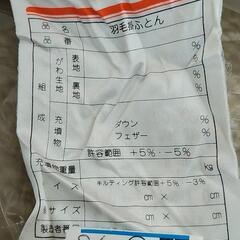 品名 羽毛掛ふとん
品番
組成 がわ生地 表地 %
裏地 %
充填物 %
ダウン %
フェザー %
許容範囲 +5% -5%
充填物重量 kg
イズ キルティング許容範囲+5% -3%
cm × cm
サイズ cm × cm
製造者番号